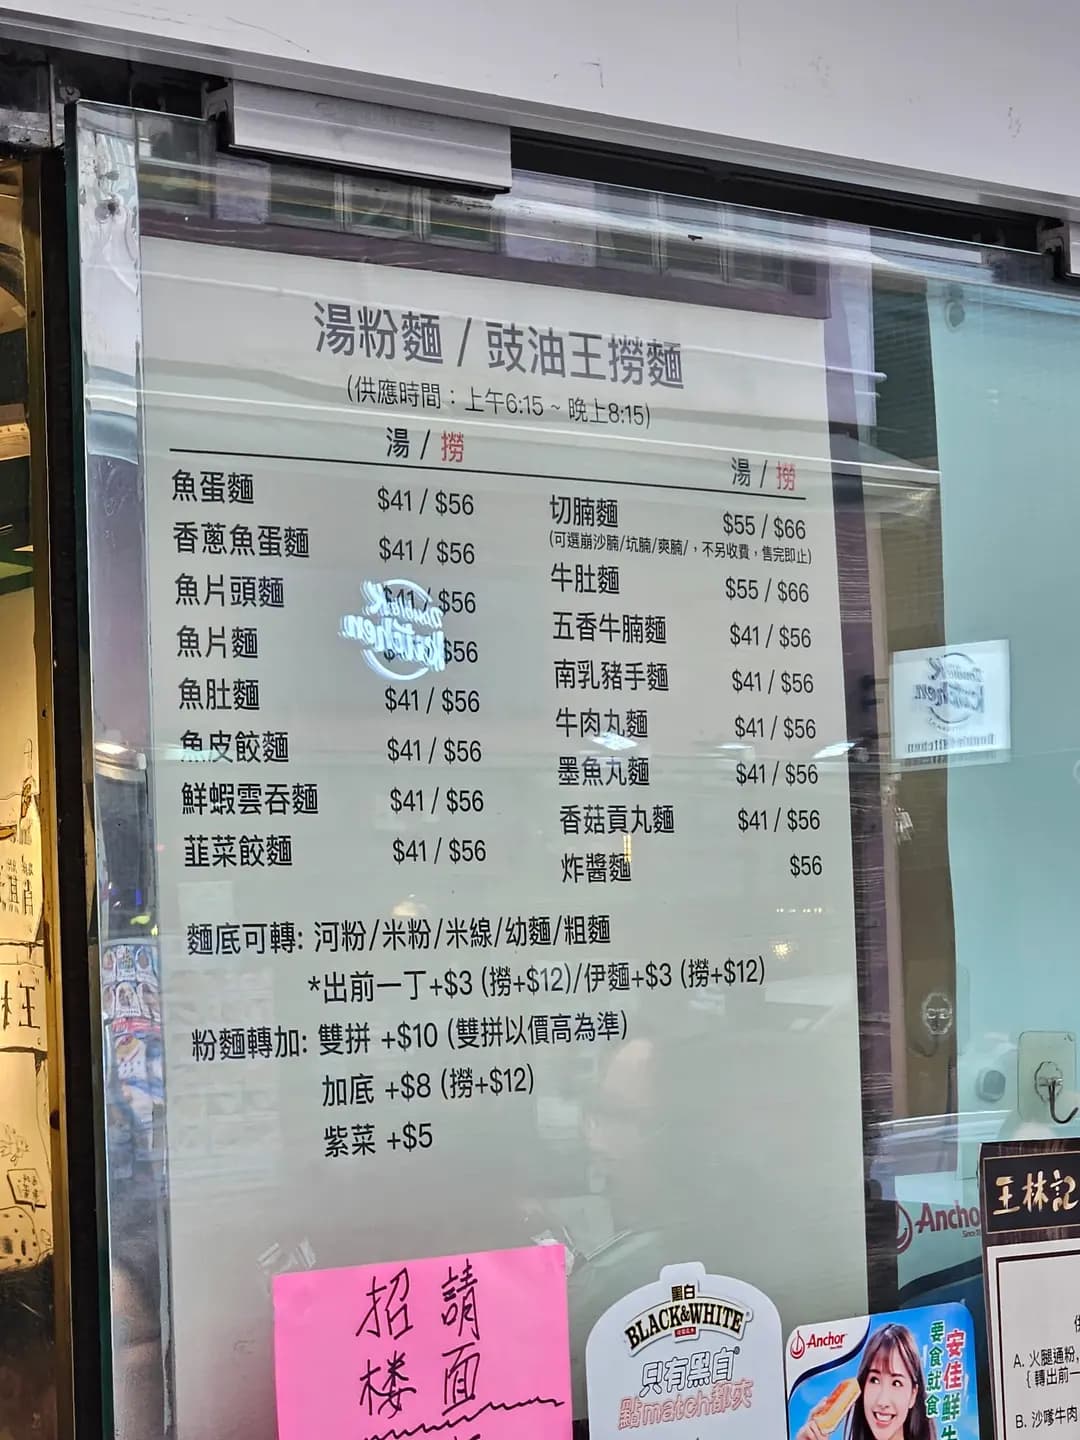 湯粉麵 / 豉油王撈麵
(供應時間：上午6:15 ~ 晚上8:15)
湯 / 撈
魚蛋麵 $41 / $56
香蔥魚蛋麵 $41 / $56
魚片頭麵 $41 / $56
魚片麵 $56
魚肚麵 $41 / $56
魚皮餃麵 $41 / $56
鮮蝦雲吞麵 $41 / $56
韮菜餃麵 $41 / $56
湯 / 撈
切腩麵 $55 / $66
(可選崩沙腩/坑腩/爽腩/，不另收費，售完即止)
牛肚麵 $55 / $66
五香牛腩麵 $41 / $56
南乳豬手麵 $41 / $56
牛肉丸麵 $41 / $56
墨魚丸麵 $41 / $56
香菇貢丸麵 $41 / $56
炸醬麵 $56
麵底可轉: 河粉/米粉/米線/幼麵/粗麵
*出前一丁+$3 (撈+$12)/伊麵+$3 (撈+$12)
粉麵轉加: 雙拼 +$10 (雙拼以價高為準)
加底 +$8 (撈+$12)
紫菜 +$5
招請
楼面
黑白
BLACK&WHITE
只有黑白
點match都夾
Anchor
安佳鮮牛
要食就食
Ancho
王林記
A. 火腿通粉,
{ 轉出前一
B. 沙嗲牛肉